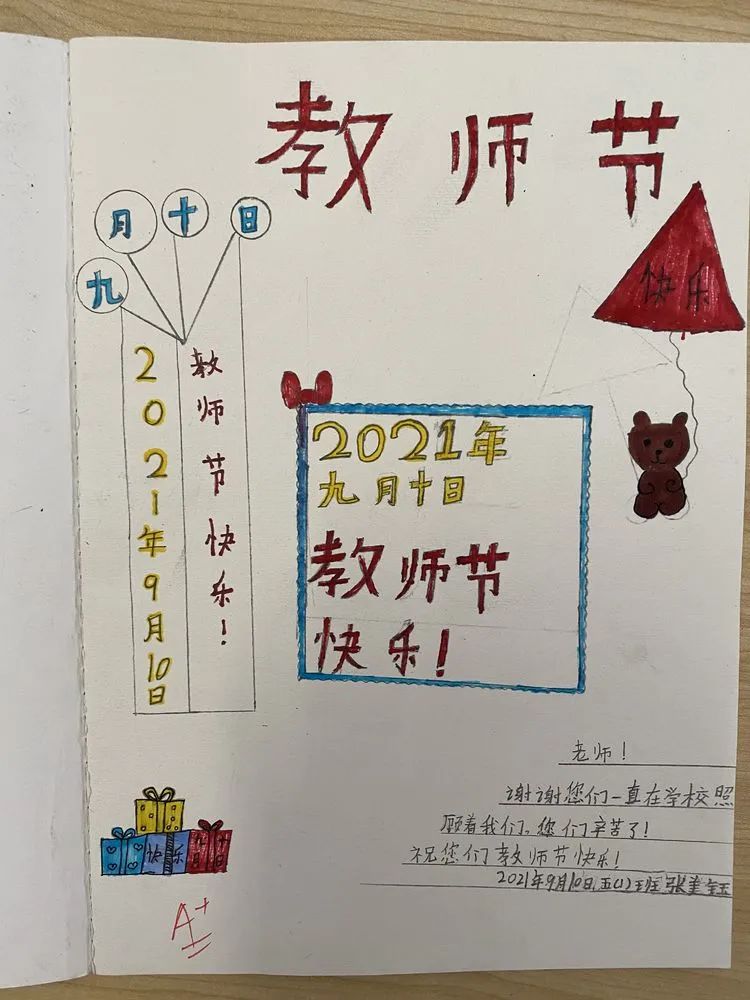 教师节
快乐
九月十日
2021年9月10日
教师节快乐！
2021年
九月十日
教师节
快乐！
老师！
谢谢您们一直在学校照
顾着我们，您们辛苦了！
祝您们教师节快乐！
2021年9月10日，五(1)班 张
快乐
A+